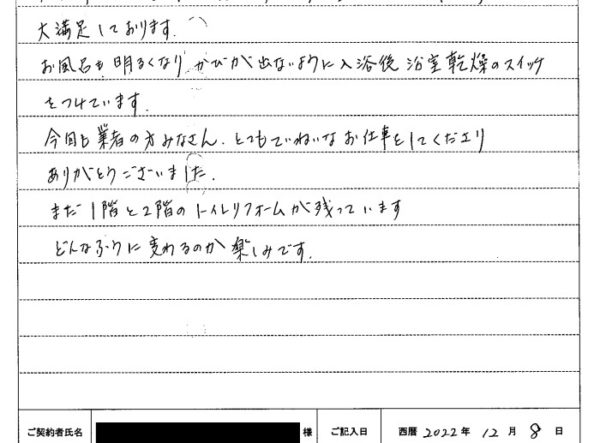 大満足しております。
お風呂も明るくなり かびが出ないように入浴後 浴室乾燥のスイッチ
をつけています。
今回も業者の方みなさん、とてもていねいなお仕事をしてくださり
ありがとうございました。
まだ1階と2階のトイレリフォームが残っています
どんなふうに変わるのか 楽しみです。
ご契約者氏名 様 ご記入日 西暦 2022年 12月 8日